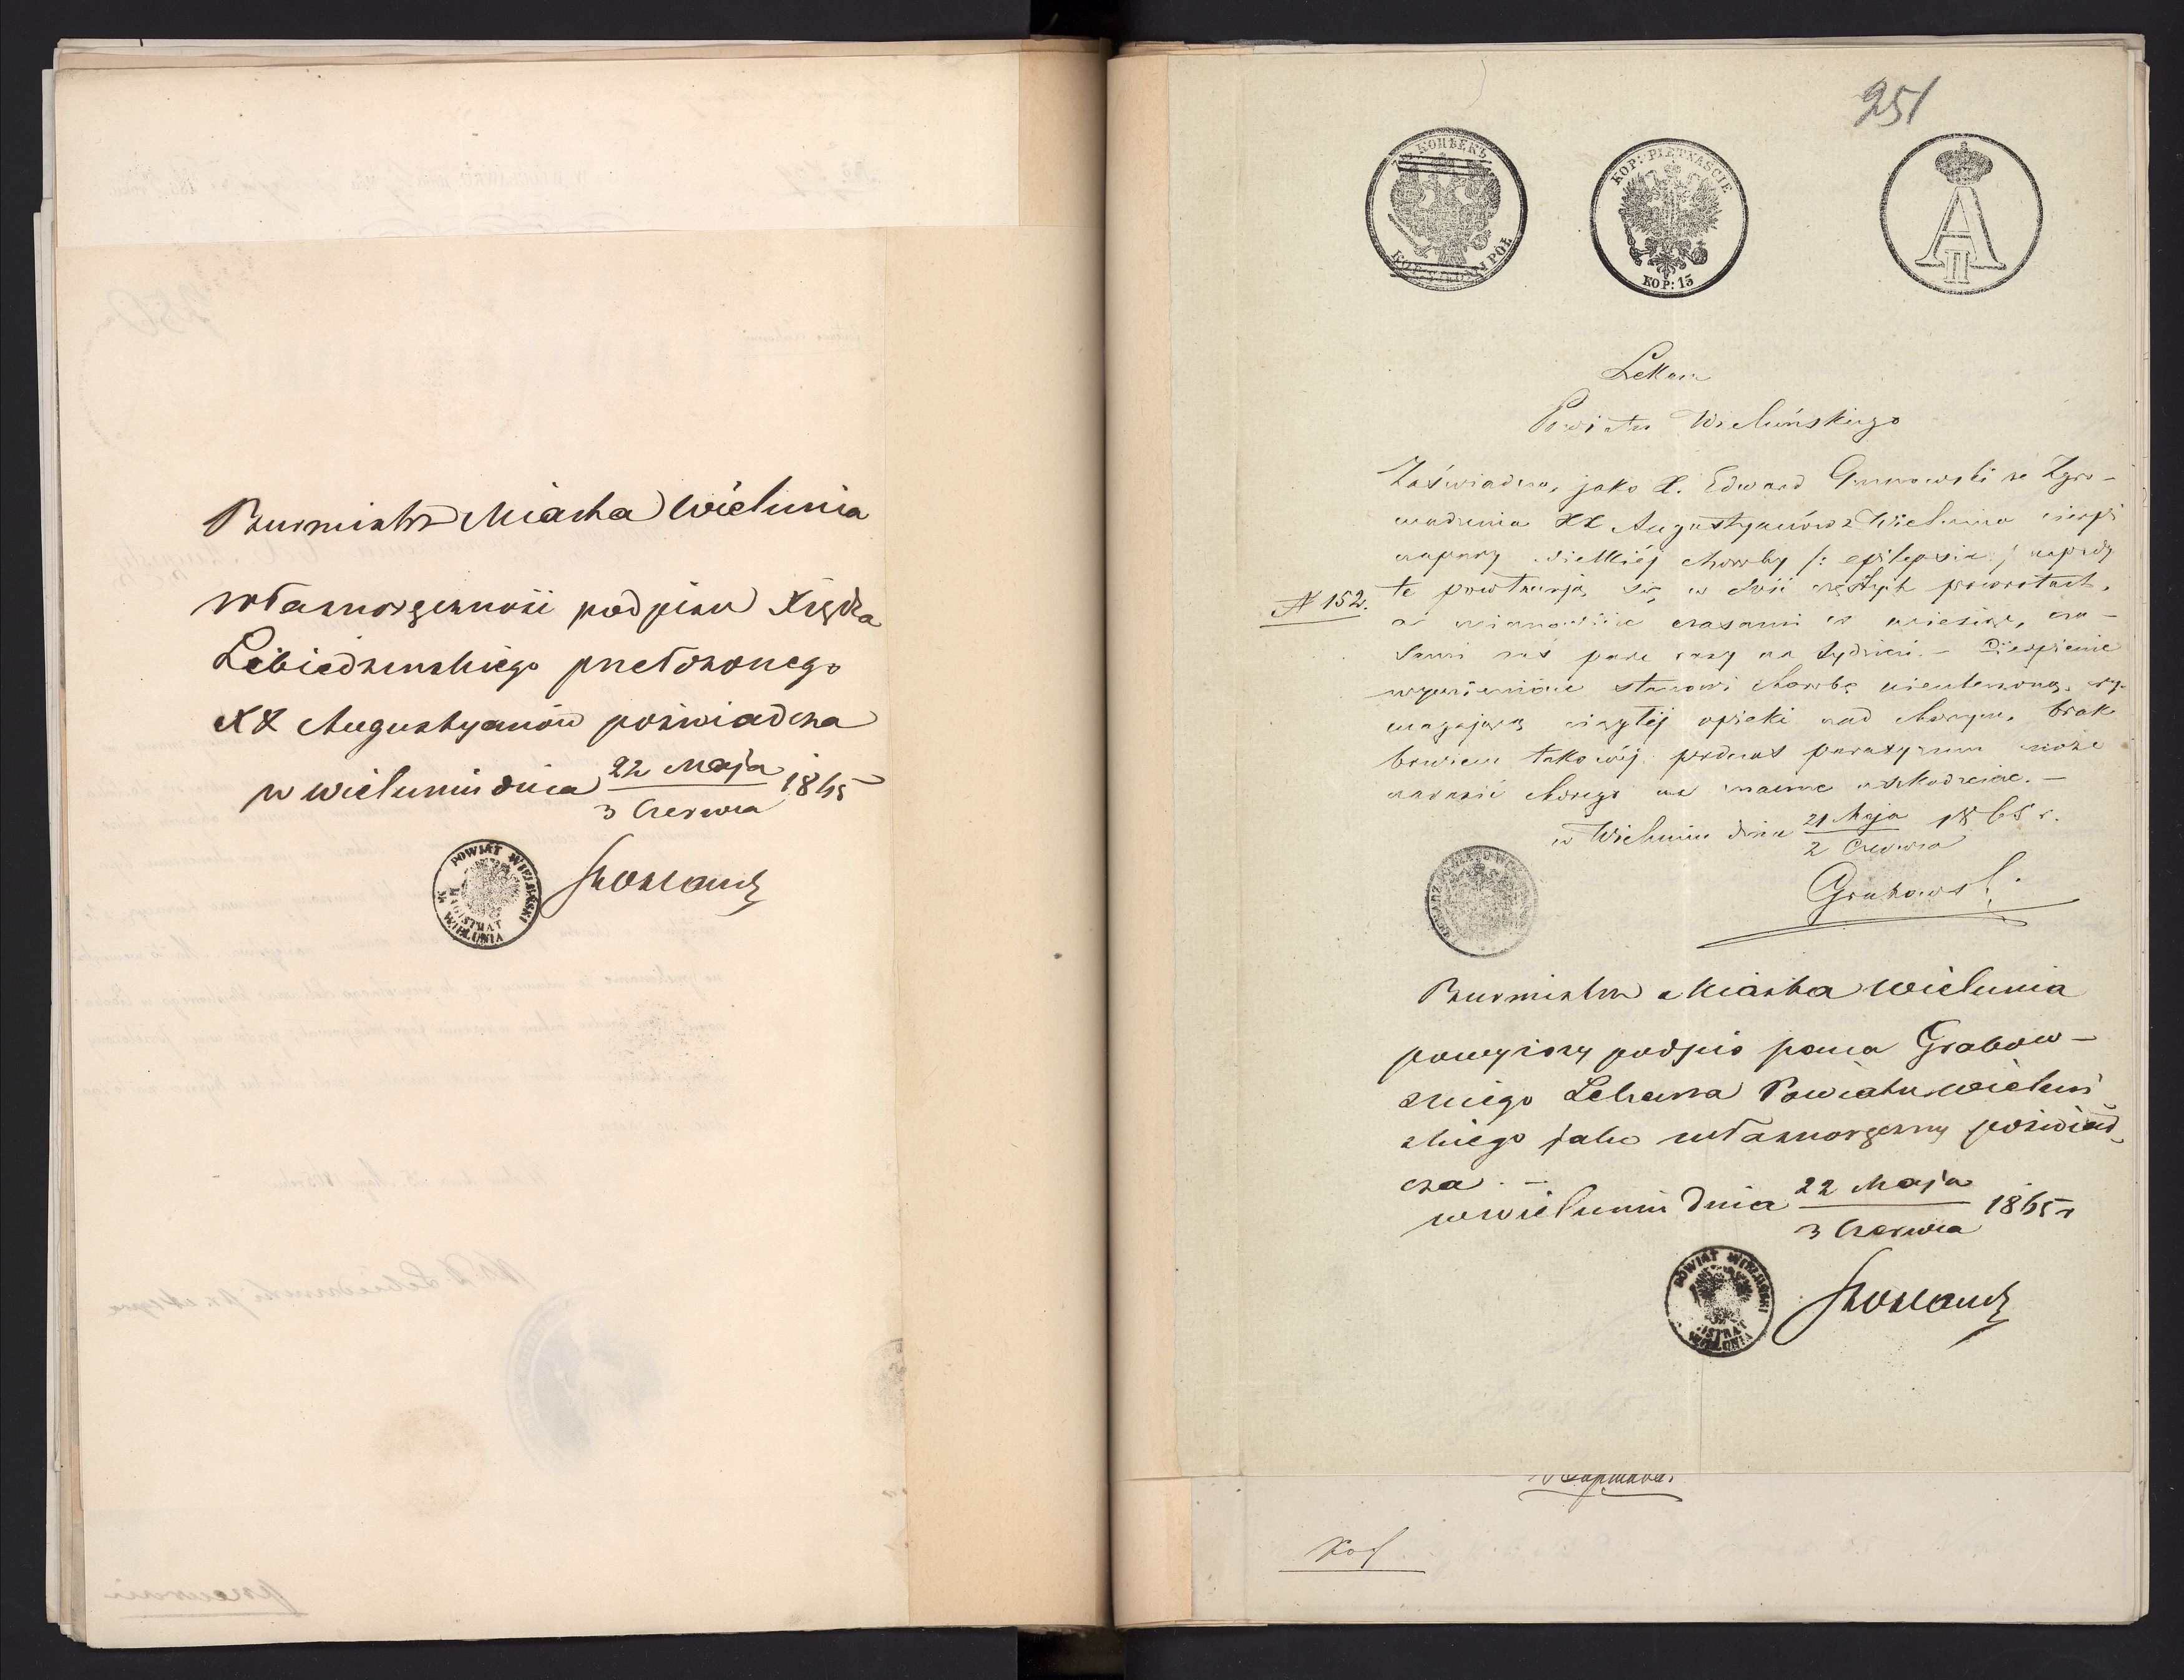 Burmistrz Miasta Wielunia
własnoręczność podpisu Xiędza
Lebiedzinskiego przełożonego
XX Augustyanów poświadcza
w Wieluniu dnia 22 Maja / 3 Czerwca 1865
POWIAT WIELUŃSKI
MAGISTRAT
M. WIELUNIA
251
KOPIEJEK
KOP: PIĘTNAŚCIE
KOP: 15
A II
Lekarz
Powiatu Wieluńskiego
Zaświadcza, jako X. Edward Gunowski ze Zgro-
madzenia XX Augustyanów z Wielunia cierpi
napady wielkiéj choroby /: epilepsia :/ napady
№ 152.
te powtarzają się w dość częstych powrotach,
a mianowicie czasami co miesiąc, cza-
sami zaś parę razy na tydzień. - Cierpienie
wymienione stanowi chorobę nieuleczoną, wy-
magającą ciągłéj opieki nad chorym, brak
bowiem takowéj podczas paroxyzmu może
narazić chorego na znaczne uszkodzenie. -
w Wieluniu dnia 21 Maja / 2 Czerwca 1865 r.
Grabowski
Burmistrz Miasta Wielunia
powyższy podpis pana Grabow-
skiego Lekarza Powiatu Wieluń
skiego jako własnoręczny poświad-
cza. -
w Wieluniu dnia 22 Maja / 3 Czerwca 1865 r
POWIAT WIELUŃSKI